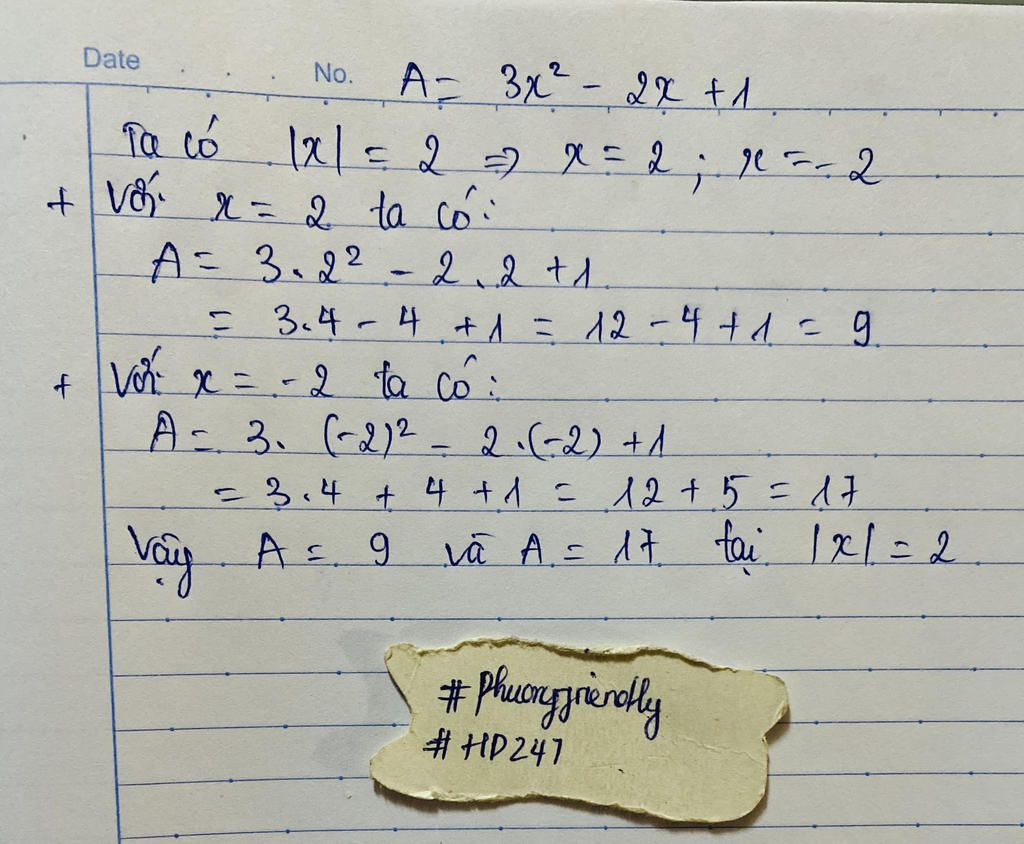 Date No. A = 3x² - 2x + 1
Ta có |x| = 2 => x = 2 ; x = - 2
+ Với x = 2 ta có:
A = 3.2² - 2.2 + 1
= 3.4 - 4 + 1 = 12 - 4 + 1 = 9
+ Với x = -2 ta có:
A = 3. (-2)² - 2.(-2) + 1
= 3.4 + 4 + 1 = 12 + 5 = 17
Vậy A = 9 và A = 17 tại |x| = 2
#Phuongfriendly
#HD247